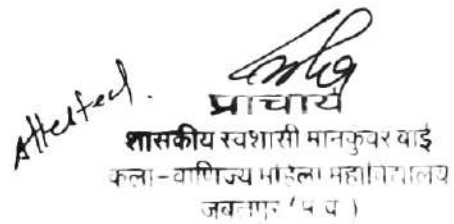 Attested.
प्राचार्य
शासकीय स्वशासी मानकुंवर बाई
कला-वाणिज्य महिला महाविद्यालय
जबलपुर